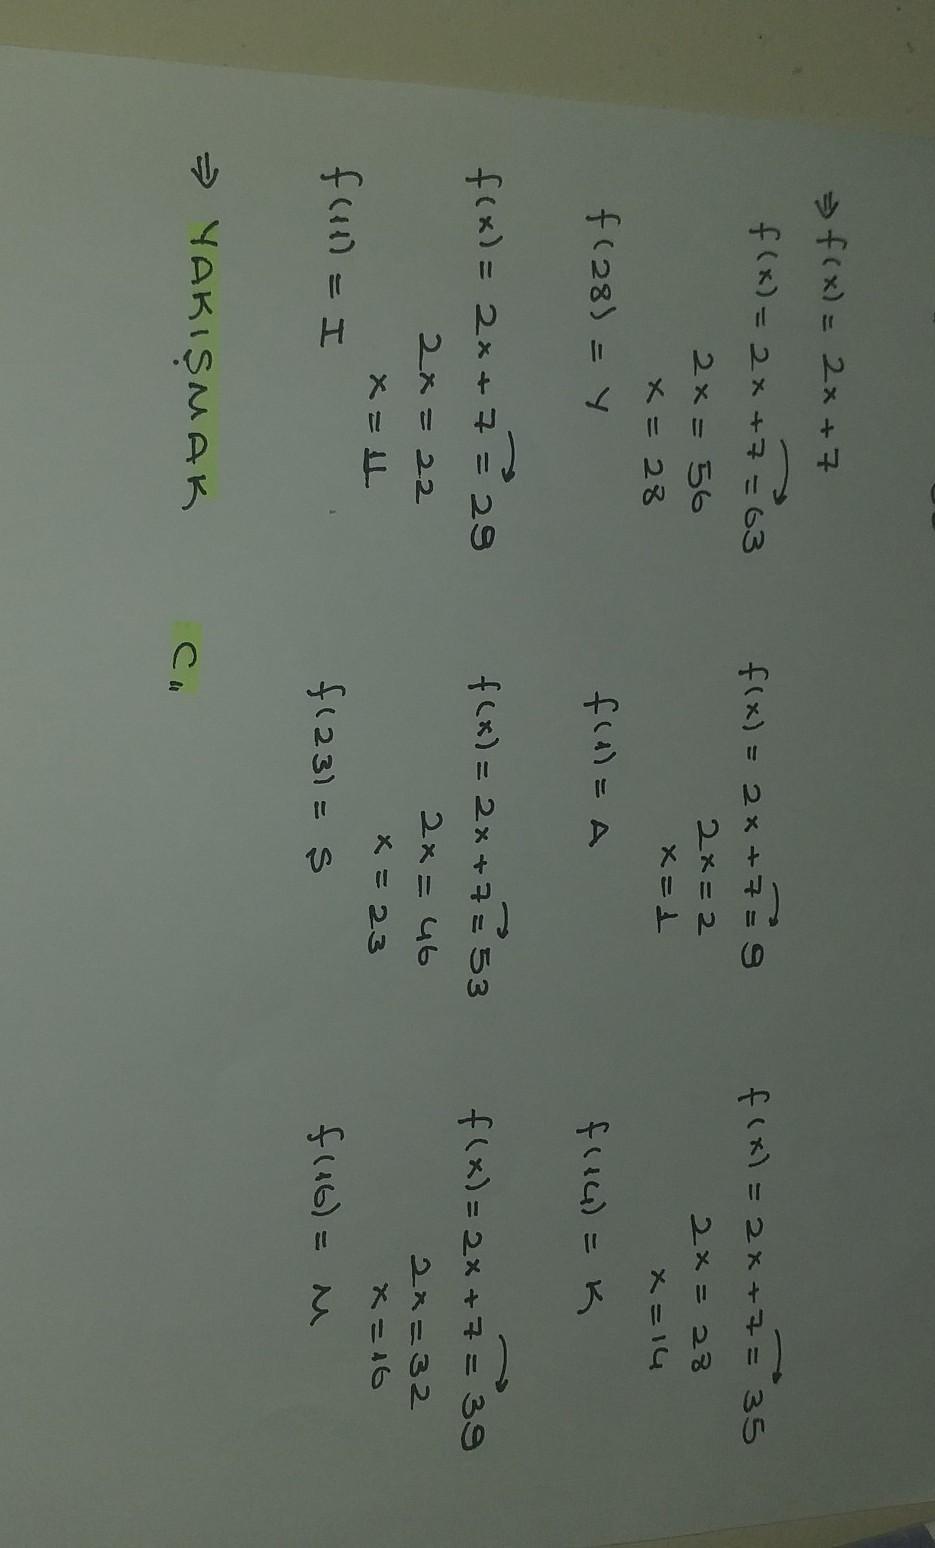 ⇒ f(x) = 2x + 7
f(x) = 2x + 7 = 63
2x = 56
x = 28
f(28) = Y
f(x) = 2x + 7 = 9
2x = 2
x = 1
f(1) = A
f(x) = 2x + 7 = 35
2x = 28
x = 14
f(14) = K
f(x) = 2x + 7 = 29
2x = 22
x = 11
f(11) = I
f(x) = 2x + 7 = 53
2x = 46
x = 23
f(23) = Ş
f(x) = 2x + 7 = 39
2x = 32
x = 16
f(16) = M
⇒ YAKIŞMAK C"